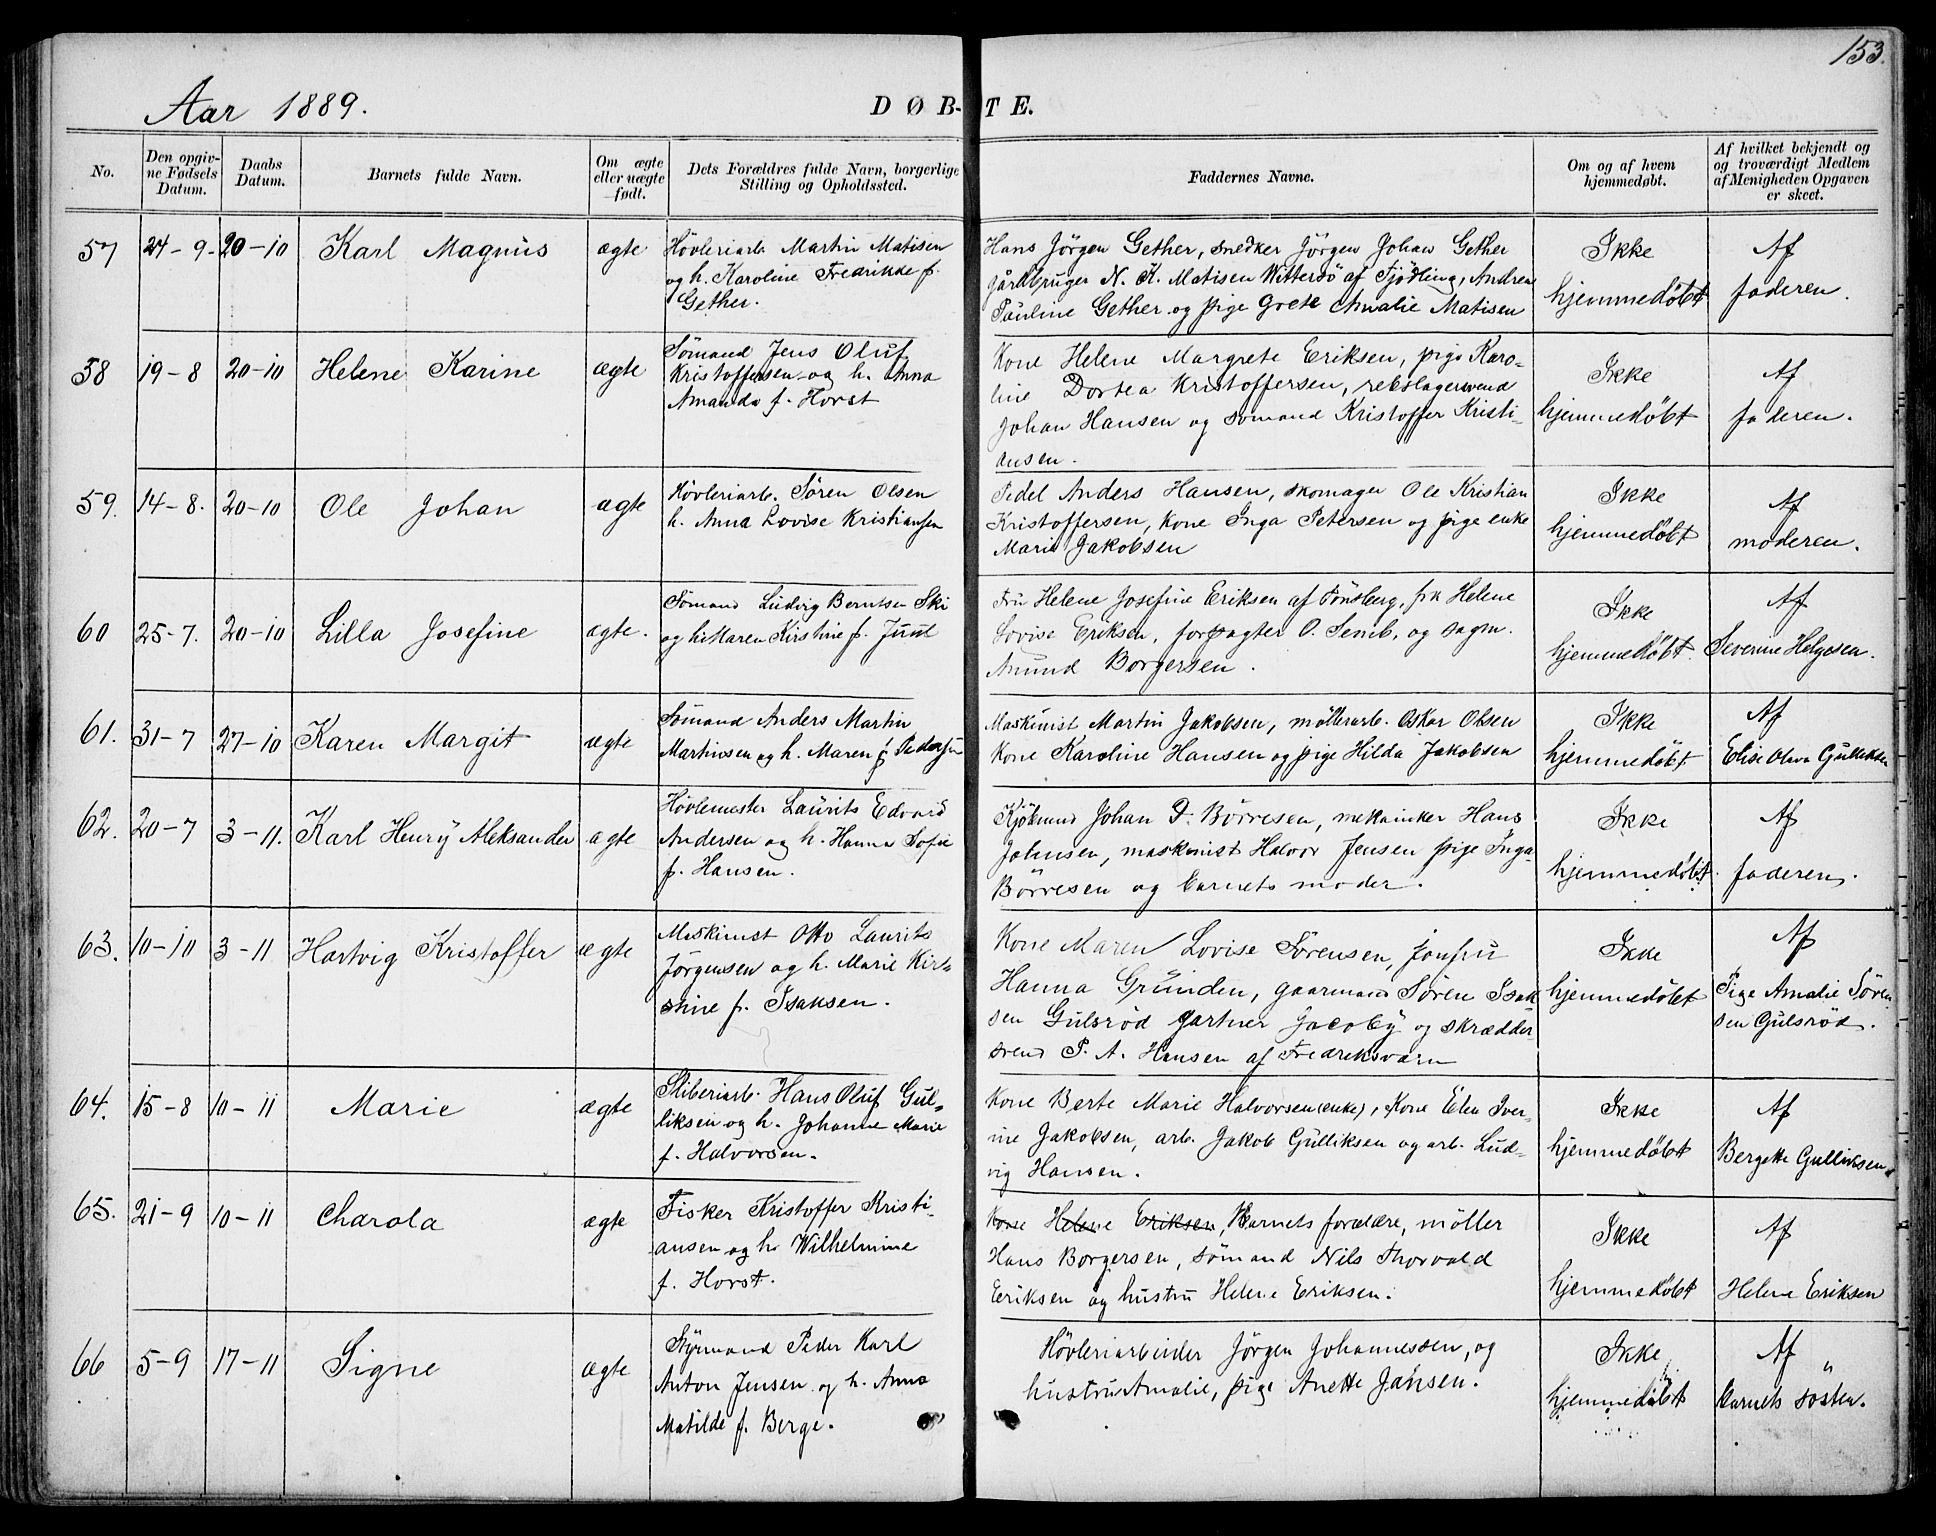 153.
Aar 1889.
DØB-TE.
No.
Den opgiv-
ne Fødsels
Datum.
Daabs
Datum.
Barnets fulde Navn.
Om ægte
eller uægte
født.
Dets Forældres fulde Navn, borgerlige
Stilling og Opholdssted.
Faddernes Navne.
Om og af hvem
hjemmedøbt.
Af hvilket bekjendt og
og troværdigt Medlem
af Menigheden Opgaven
er skeet.
57 24-9- 20-10 Karl Magnus ægte
Høvleriarb. Martin Matisen
og h. Karoline Fredrikke f.
Gether.
Hans Jörgen Gether, snedker Jörgen Johan Gether
gårdbruger N. K. Matisen Wittersö af Tjödling, Andrea
Pauline Gether og pige Grete Amalie Matisen
Ikke
hjemmedöbt
Af
faderen.
58 19-8 20-10 Helene Karine ægte
Sömand Jens Oluf
Kristoffersen og h. Anna
Amanda f. Horst
Kone Helene Margrete Eriksen, pige Karo-
line Dortea Kristoffersen, rebslagersvend
Johan Hansen og sömand Kristoffer Kristi-
ansen.
Ikke
hjemmedöbt
Af
faderen.
59. 14-8. 20-10 Ole Johan ægte
Høvleriarb. Sören Olsen
h. Anna Lovise Kristiansen
Pedel Anders Hansen, skomager Ole Kristian
Kristoffersen, kone Inga Petersen og pige enke
Marie Jakobsen
Ikke
hjemmedöbt
Af
moderen.
60 25-7. 20-10 Lilla Josefine ægte.
Sömand Ludvig Berntsen Ski
og h. Maren Kirstine f. Juul
Fru Helene Josefine Eriksen af Tönsberg, frk Helene
Lovise Eriksen, forpagter O. Semb, og sagm.
Amund Borgersen.
Ikke
hjemmedöbt.
Af
Severine Helgesen.
61. 31-7 27-10 Karen Margit ægte
Sömand Anders Martin
Martinsen og h. Maren f. Pedersen
Maskinist Martin Jakobsen, möllerarb. Oskar Olsen
Kone Karoline Hansen og pige Hilda Jakobsen
Ikke
hjemmedöbt
Af
Elise Olava Gulliksen
62. 20-7 3-11. Karl Henry Aleksander ægte
Høvlemester Laurits Edvard
Andersen og h. Hanna Sofie
f. Hansen.
Kjöbmand Johan D. Börresen, mekaniker Hans
Johnsen, maskinist Halvor Jensen pige Inga
Börresen og barnets moder.
Ikke
hjemmedöbt.
Af
faderen.
63. 10-10 3-11 Hartvig Kristoffer ægte
Maskinist Otto Laurits
Jörgensen og h. Marie Kir-
stine f. Isaksen.
Kone Maren Lovise Sörensen, jomfru
Hanna Grinden, gaarmand Sören Isak
sen Gulsröd gartner Jacoby og skrædder
svend P. A. Hansen af Fredriksværn
Ikke
hjemmedöbt
Af
Pige Amalie Sören
sen Gulsröd.
64. 15-8 10-11 Marie ægte
Sliberiarb. Hans Oluf Gul-
liksen og h. Johanne Marie
f. Halvorsen.
Kone Berte Marie Halvorsen (enke), kone Elen Iver-
ine Jakobsen, arb. Jakob Gulliksen og arb. Lud-
vig Hansen.
Ikke
hjemmedöbt
Af
Bergette Gulliksen
65. 21-9 10-11 Charola ægte
Fisker Kristoffer Kristi-
ansen og h. Wilhelmine
f. Horst.
Kone Helene Eriksen, Barnets forældre, möller
Hans Borgersen, sömand Nils Thorvald
Eriksen og hustru Helene Eriksen.
Ikke
hjemmedöbt
Af
Helene Eriksen
66 5-9 17-11 Signe ægte
Styrmand Peder Karl
Anton Jensen og h. Anna
Matilde f. Berge.
Høvleriarbeider Jörgen Johannessen, og
hustru Amalie, pige Anette Jansen.
Ikke
hjemmedöbt
Af
barnets söster.